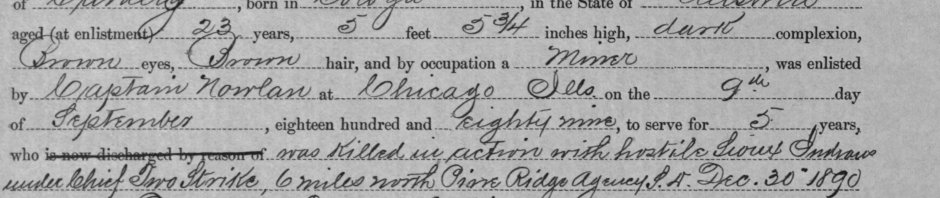 of , born in , in the State of
aged (at enlistment) 23 years, 5 feet 5 3/4 inches high, dark complexion,
Brown eyes, Brown hair, and by occupation a Miner, was enlisted
by Captain Nowlan at Chicago Ills. on the 9th day
of September, eighteen hundred and eighty nine, to serve for 5 years,
who is now discharged by reason of was killed in action with hostile Sioux Indians
under Chief Two Strike, 6 miles north Pine Ridge Agency S. D. Dec. 30" 1890